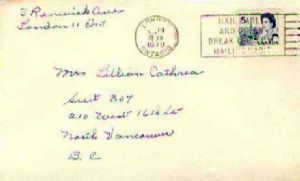 3 Renwick Ave
London 11 Ont
LONDON
1970
ONTARIO
MAIL EARLY
AND OFTEN
BREAK
MAIL
CANADA
Mrs Lillian Cathrea
Suit 307
210 West 16th St
North Vancouver
B.C